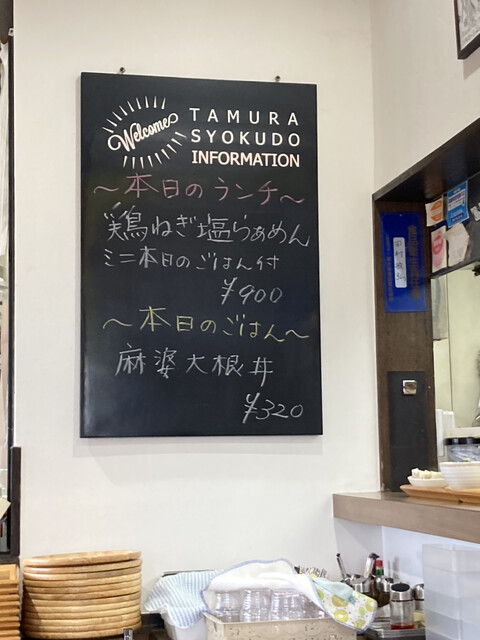 Welcome
TAMURA
SYOKUDO
INFORMATION
〜本日のランチ〜
鶏ねぎ塩らぁめん
ミニ本日のごはん付
¥900
〜本日のごはん〜
麻婆大根丼
¥320